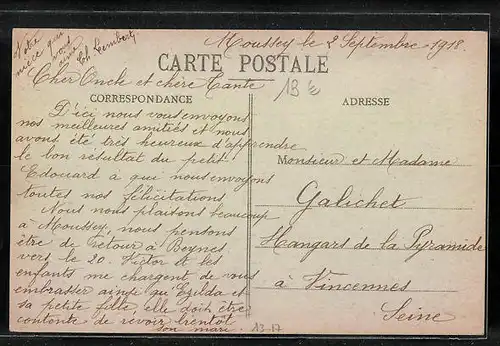 Moussey le 2 Septembre 1918.
CARTE POSTALE
Cher Oncle et chère Tante
13
CORRESPONDANCE
D'ici nous vous envoyons
nos meilleures amitiés et nous
avons été très heureux d'apprendre
le bon résultat du petit
Edouard à qui nous envoyons
toutes nos félicitations
Nous nous plaisons beaucoup
à Moussey, nous pensons
être de retour à Beynes
vers le 20. Victor et les
enfants me chargent de vous
embrasser ainsi qu'Egilda et
sa petite fille, elle doit être
contente de revoir bientôt
son mari.
Votre
nièce qui
vous
aime
Ch Lembert
ADRESSE
Monsieur et Madame
Galichet
Hangars de la Pyramide
à Vincennes
Seine
13-17